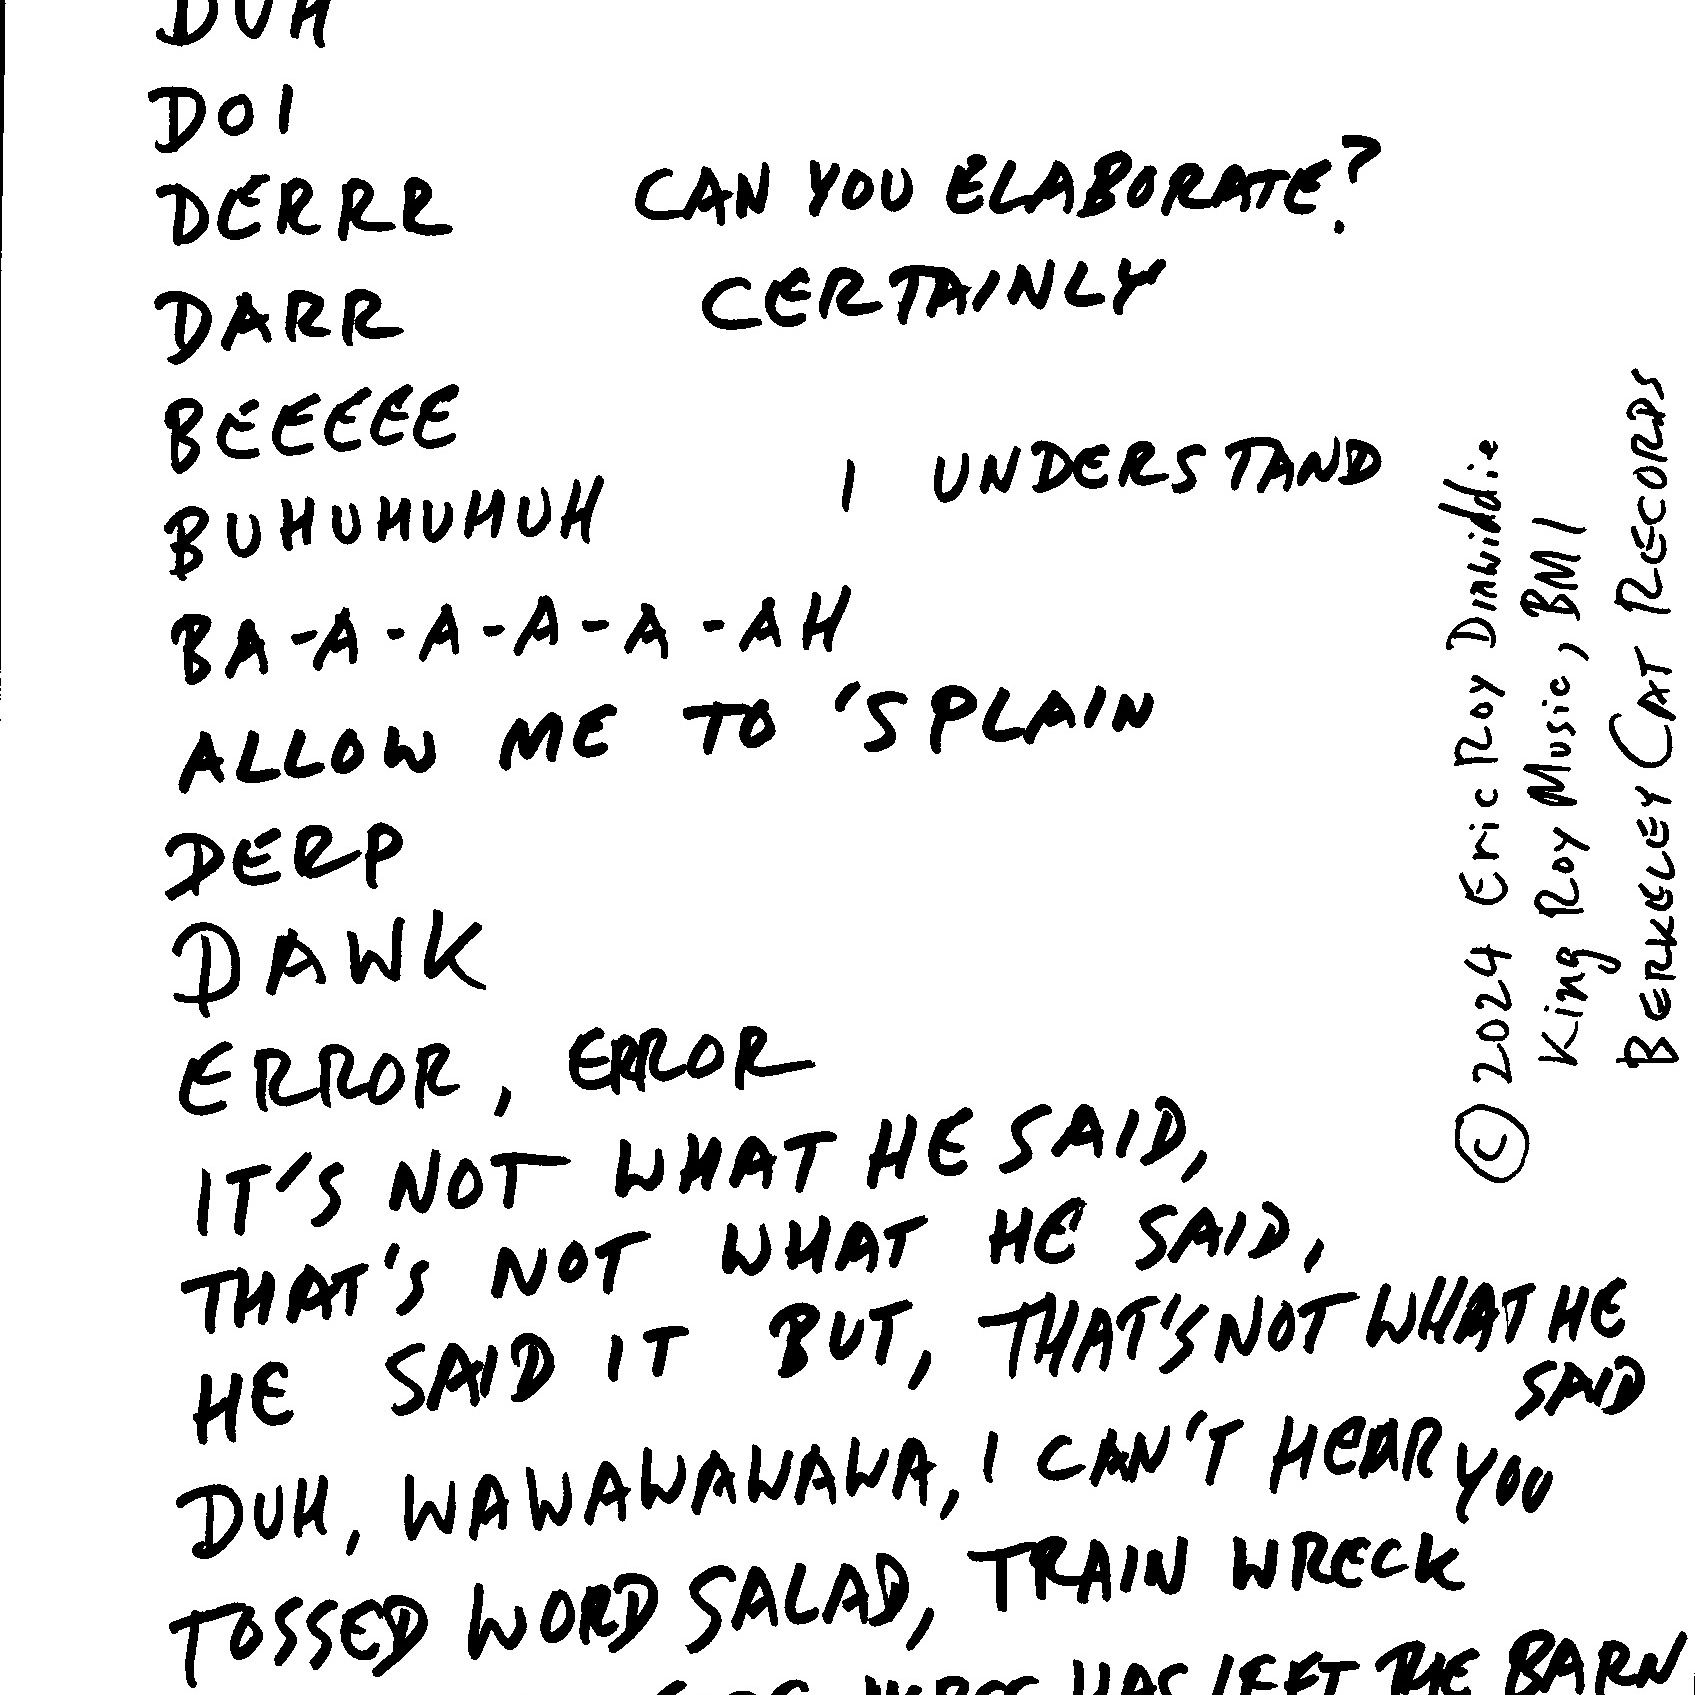 DUH
DOI
DERRR
CAN YOU ELABORATE?
DARR
CERTAINLY
BEEEEE
I UNDERSTAND
BUHUHUHUH
BA-A-A-A-A-AH
ALLOW ME TO 'SPLAIN
DERP
DAWK
ERROR, ERROR
IT'S NOT WHAT HE SAID,
THAT'S NOT WHAT HE SAID,
HE SAID IT BUT, THAT'S NOT WHAT HE
SAID
DUH, WAWAWAWAWA, I CAN'T HEAR YOU
TOSSED WORD SALAD, TRAIN WRECK
HAS LEFT THE BARN
© 2024 Eric Roy Dinwiddie
King Roy Music, BMI
BERKELEY CAT RECORDS